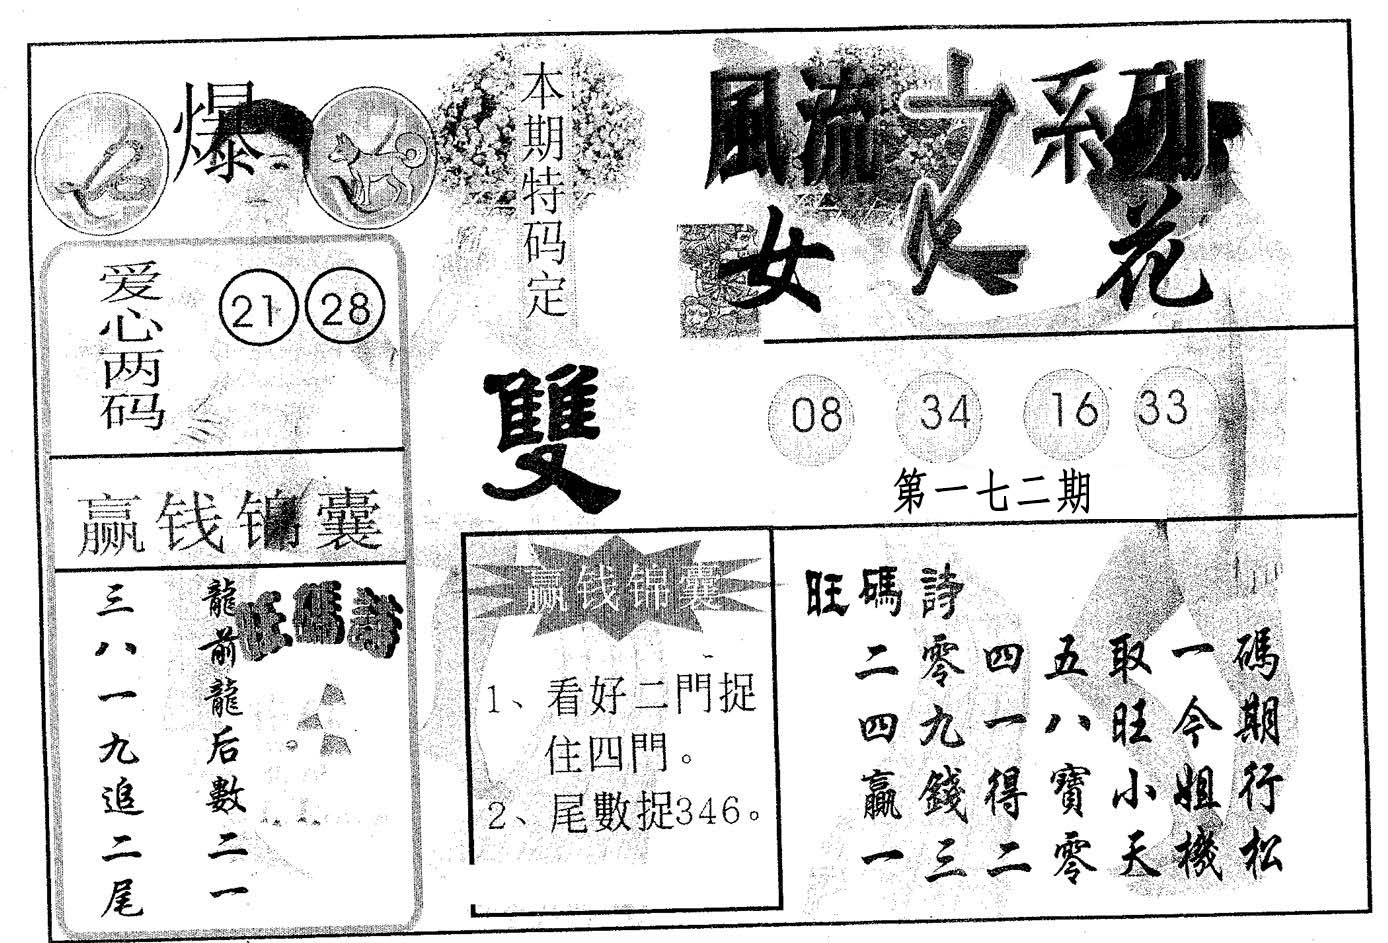 爆
本期特码定
雙
風流女系列
女人花
爱心两码
21 28
08 34 16 33
第一七二期
赢钱锦囊
旺碼詩
龍前龍后數二一
三八一九追二尾
赢钱锦囊
1、看好二門捉
住四門。
2、尾數捉346。
旺碼詩
二零四五取一碼
四九一八旺今期
贏錢得寶小姐行
一三二零天機松